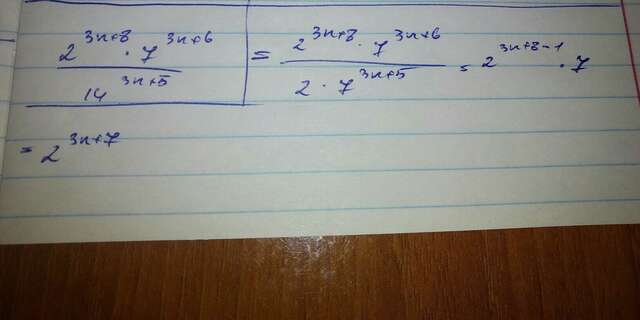 2^{3n+8} · 7^{3n+6} / 14^{3n+5} = 2^{3n+8} · 7^{3n+6} / 2 · 7^{3n+5} = 2^{3n+8-1} · 7
= 2^{3n+7}